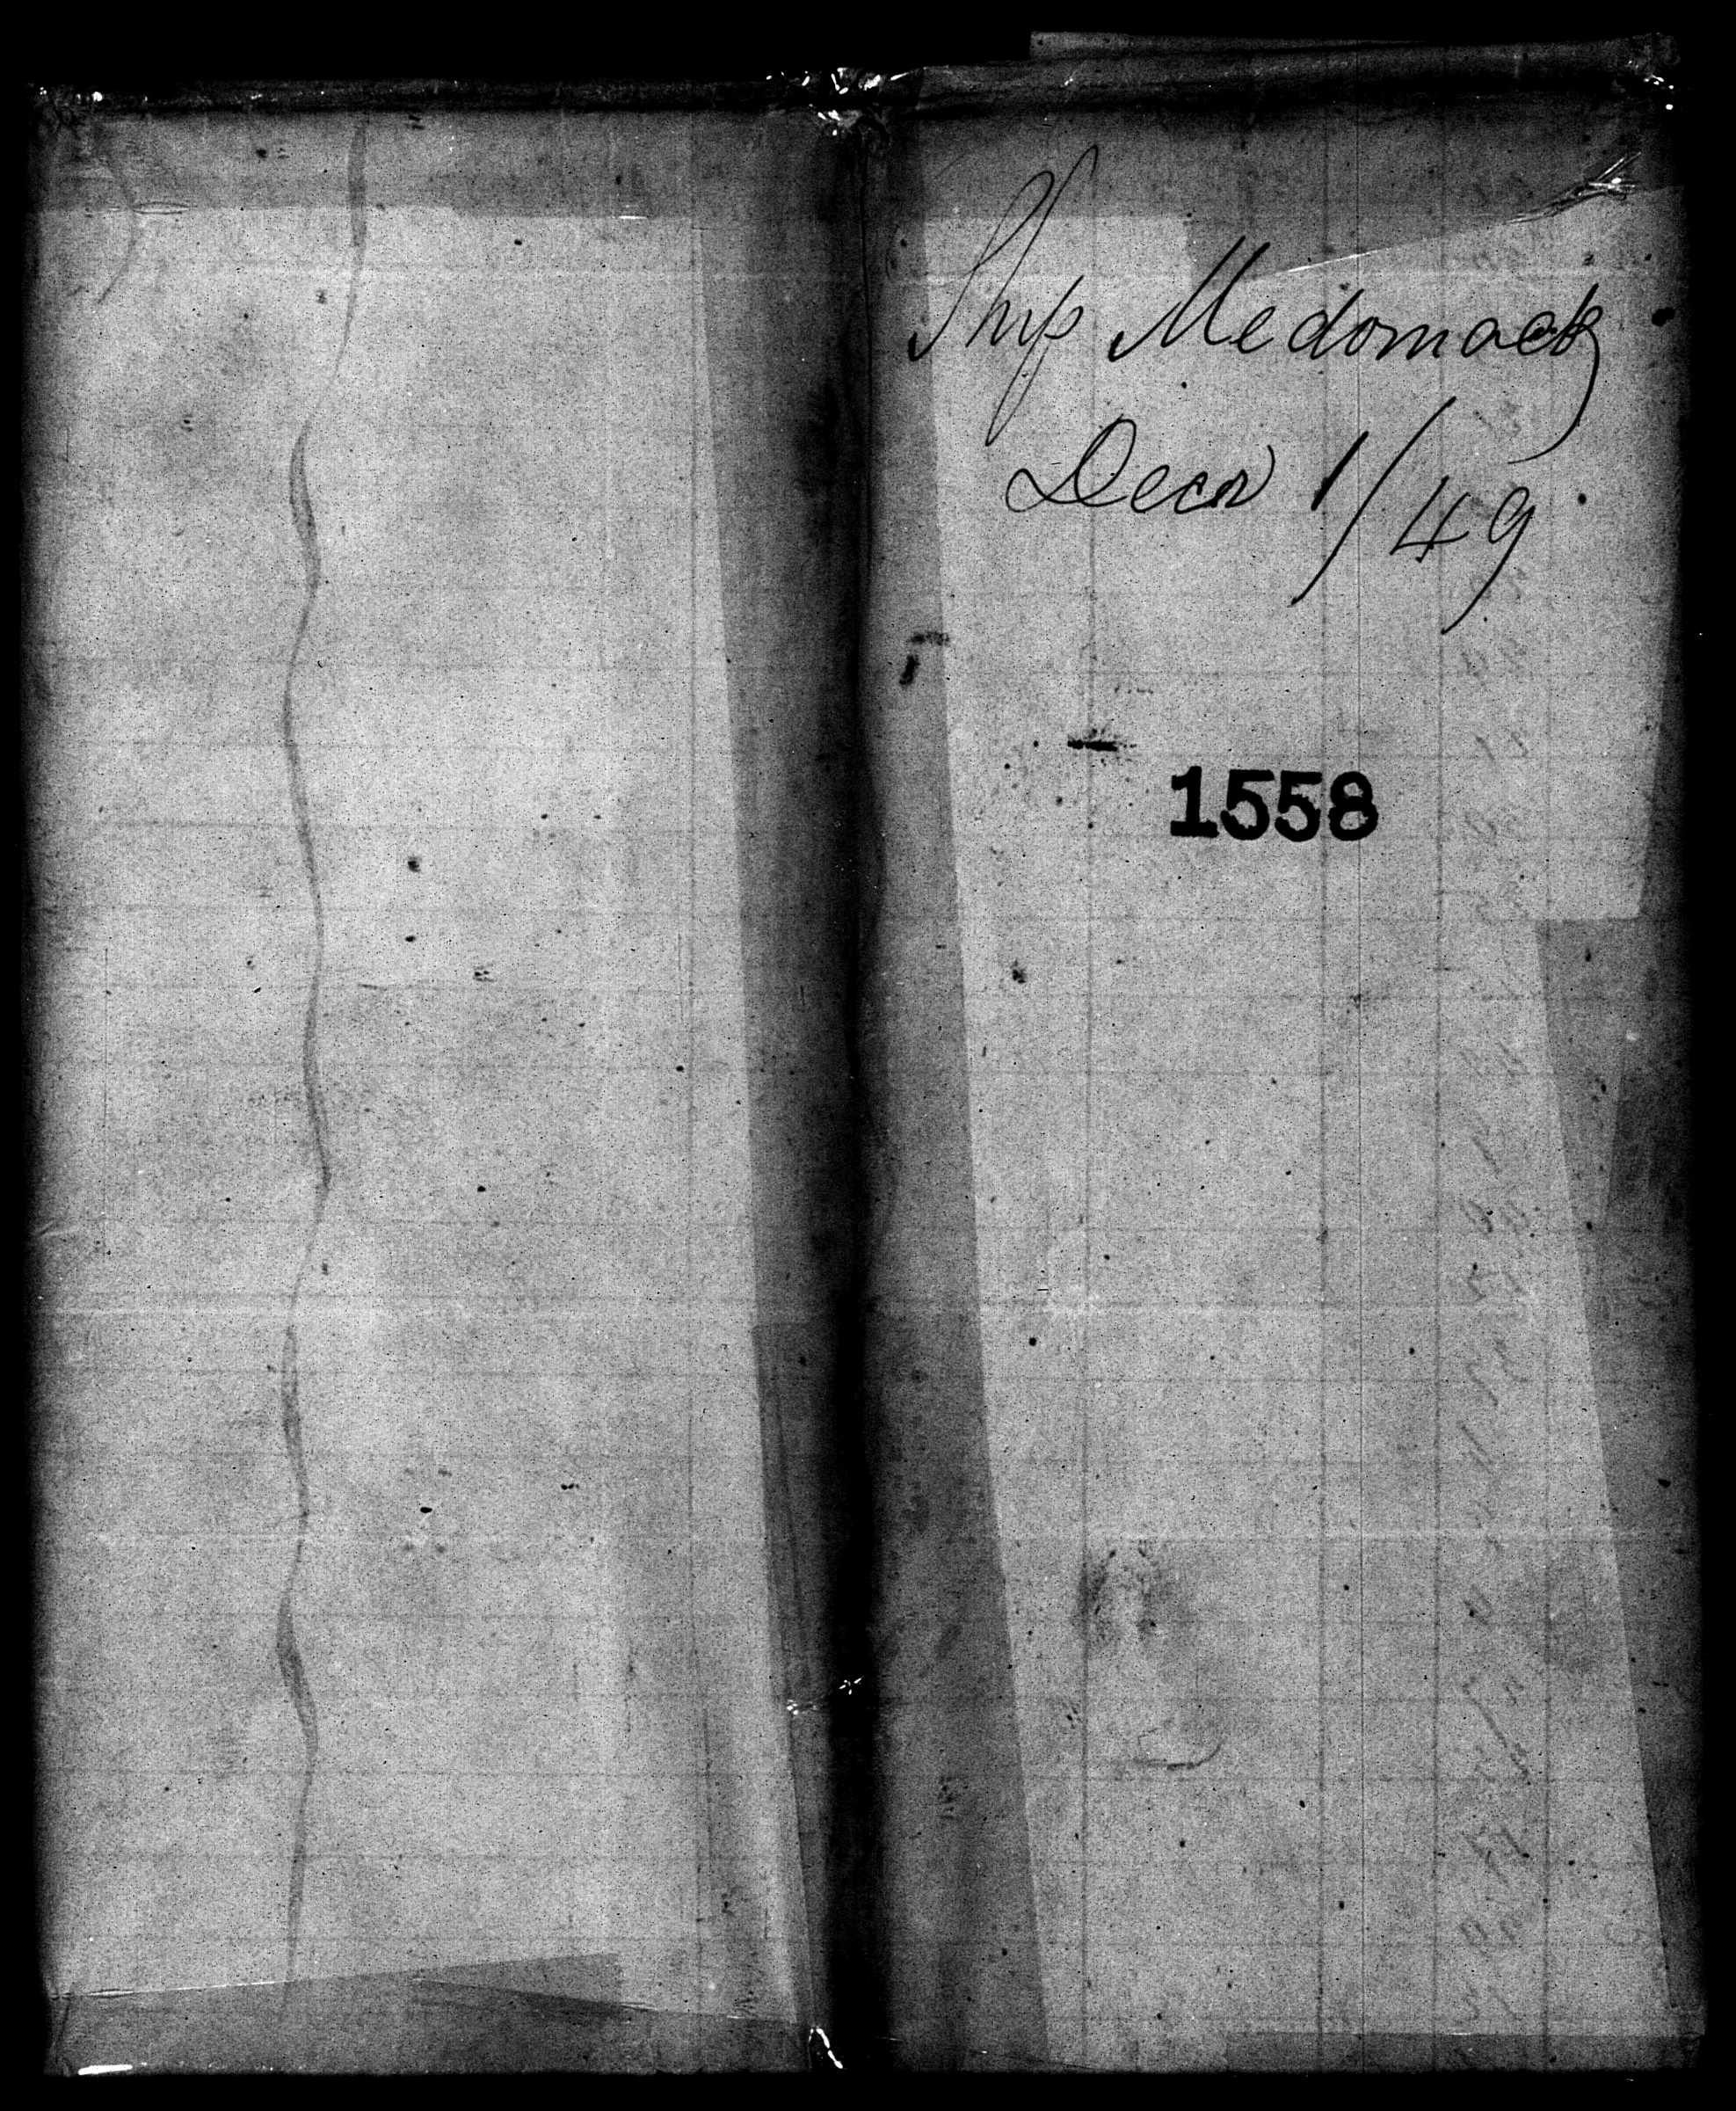 Ship Medomack
Decr 1/49
1558